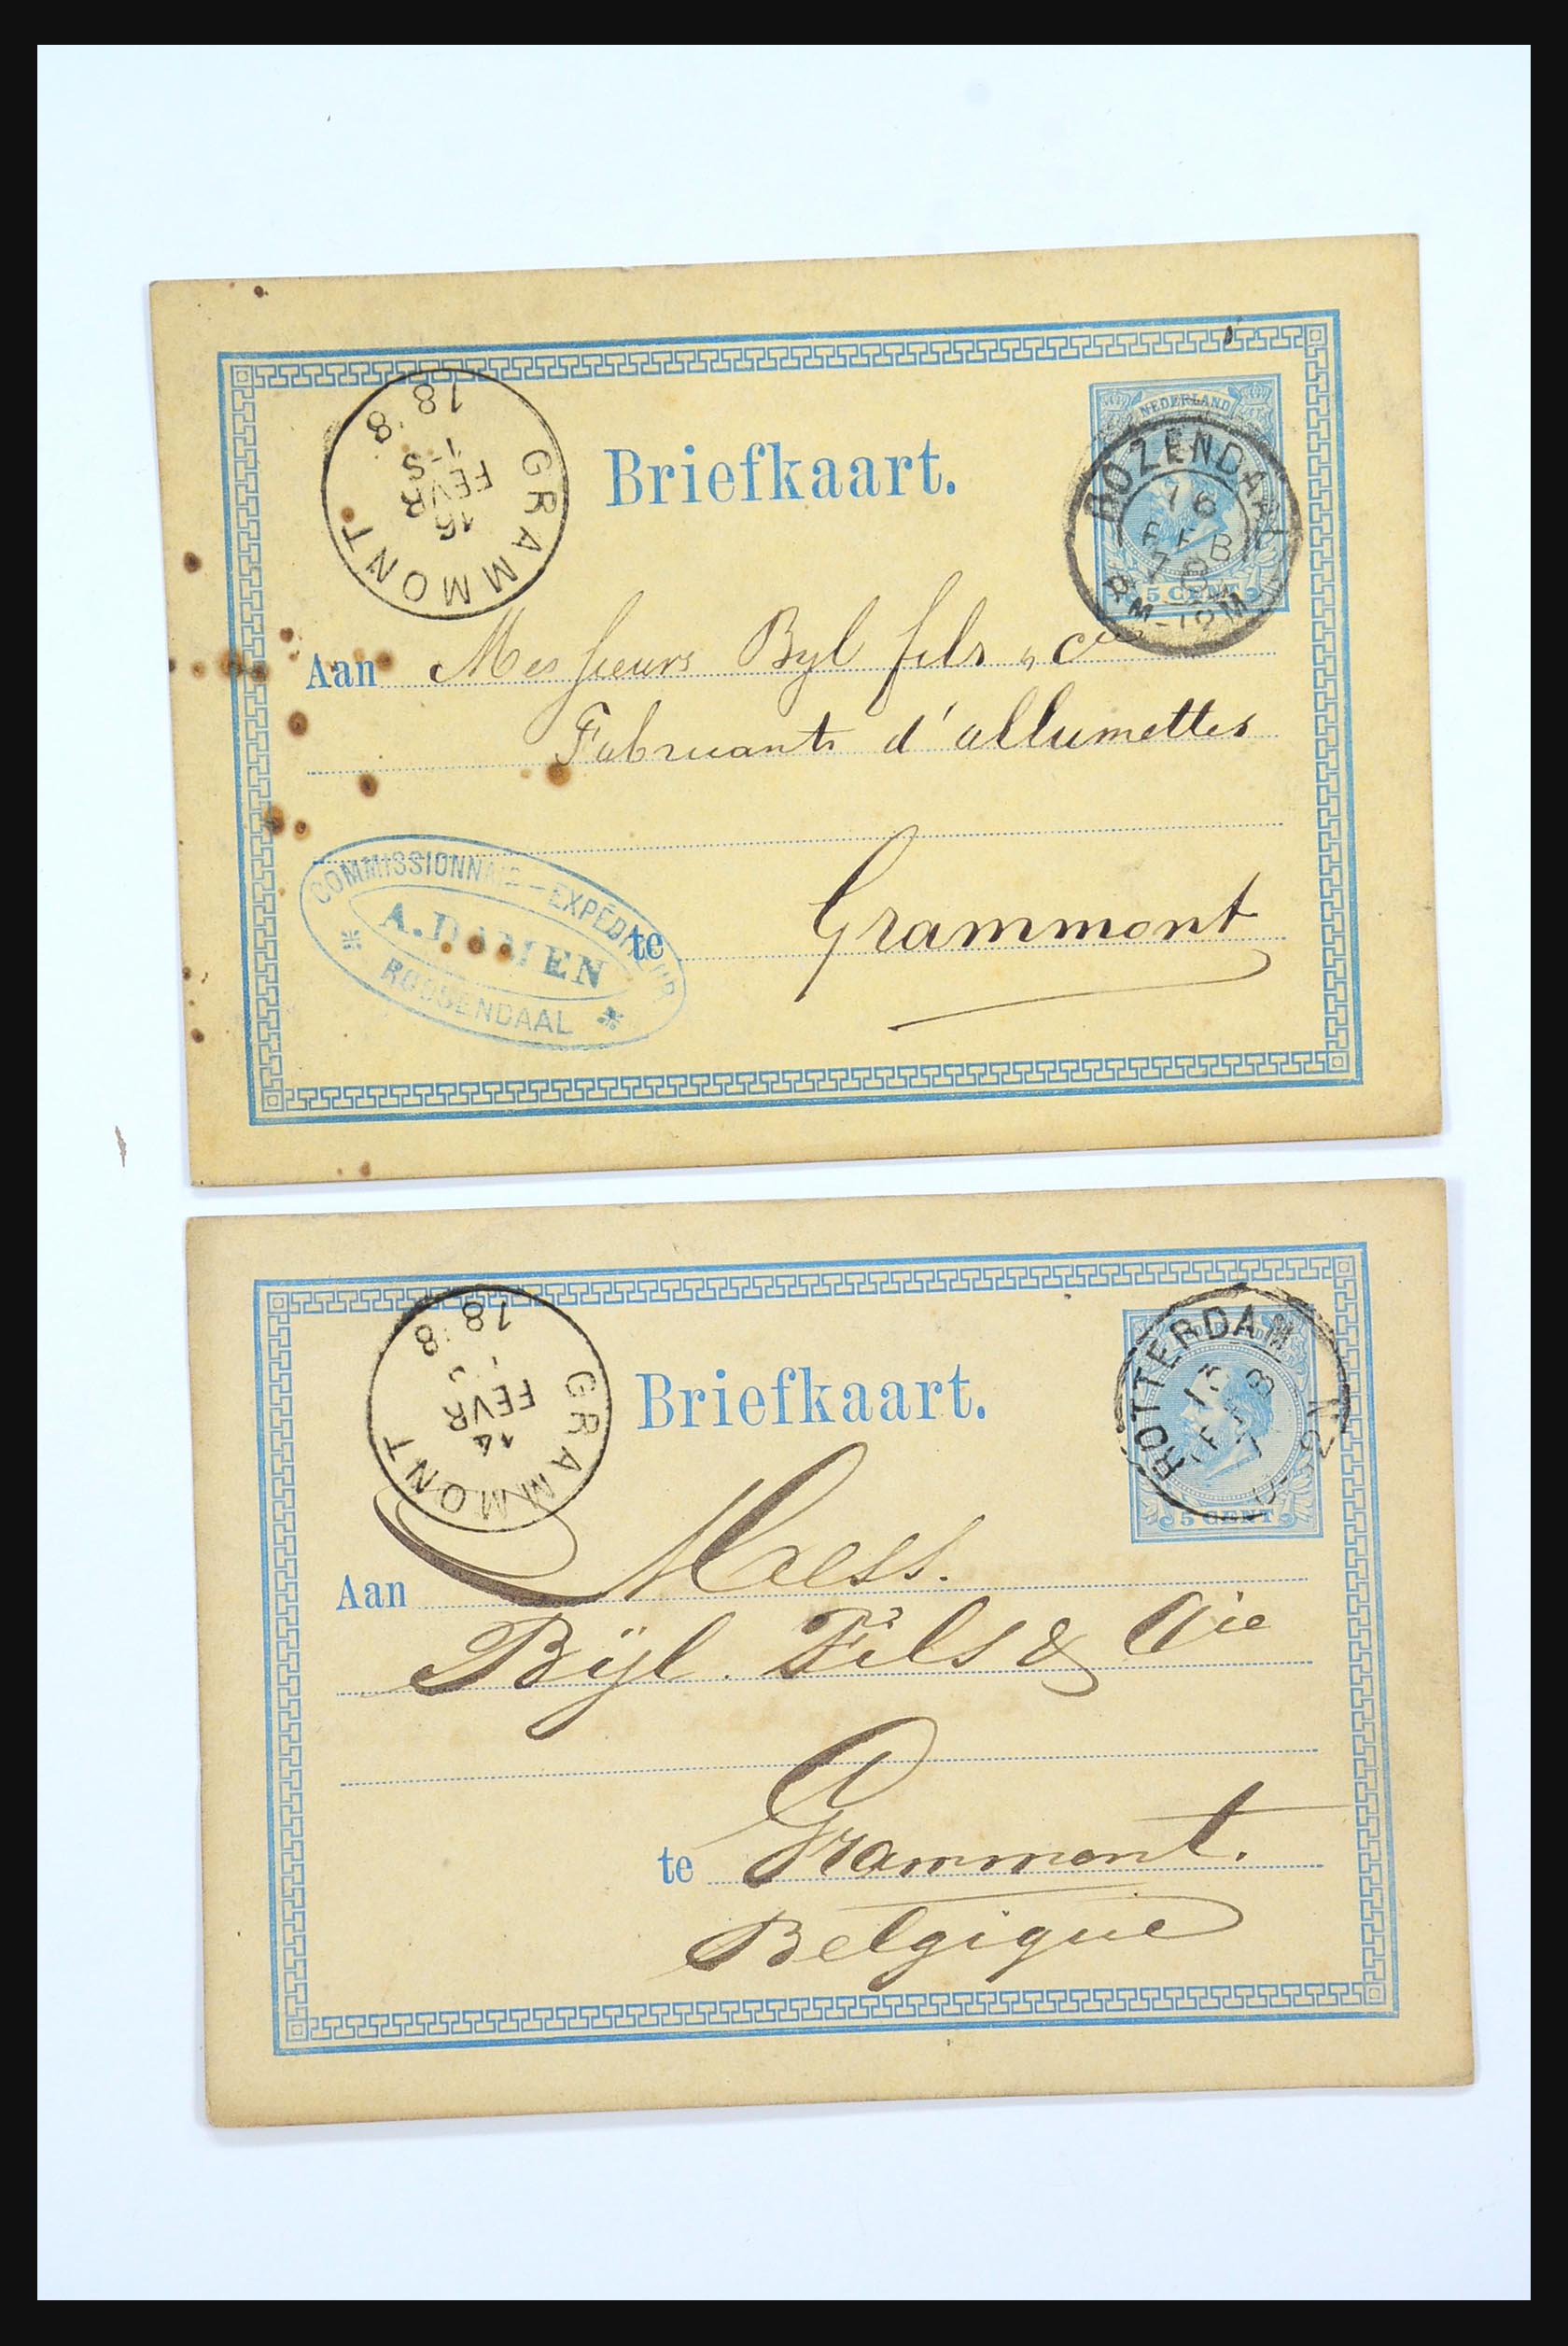 NEDERLAND
5 CENT
ROZENDAAL
16
FEB
78
8M-12M
GRAMMONT
16
FEVR
1-S
1878
Briefkaart.
Aan Messieurs Byl fils " Cie
Fabricants d'allumettes
te Grammont
COMMISSIONNAIRE-EXPÉDITEUR
A. DAMEN
ROOSENDAAL
5 CENT
ROTTERDAM
FEB
78
GRAMMONT
14
FEVR
1878
Briefkaart.
Aan Mess.
Bÿl. Fils & Cie
te Grammont.
Belgique